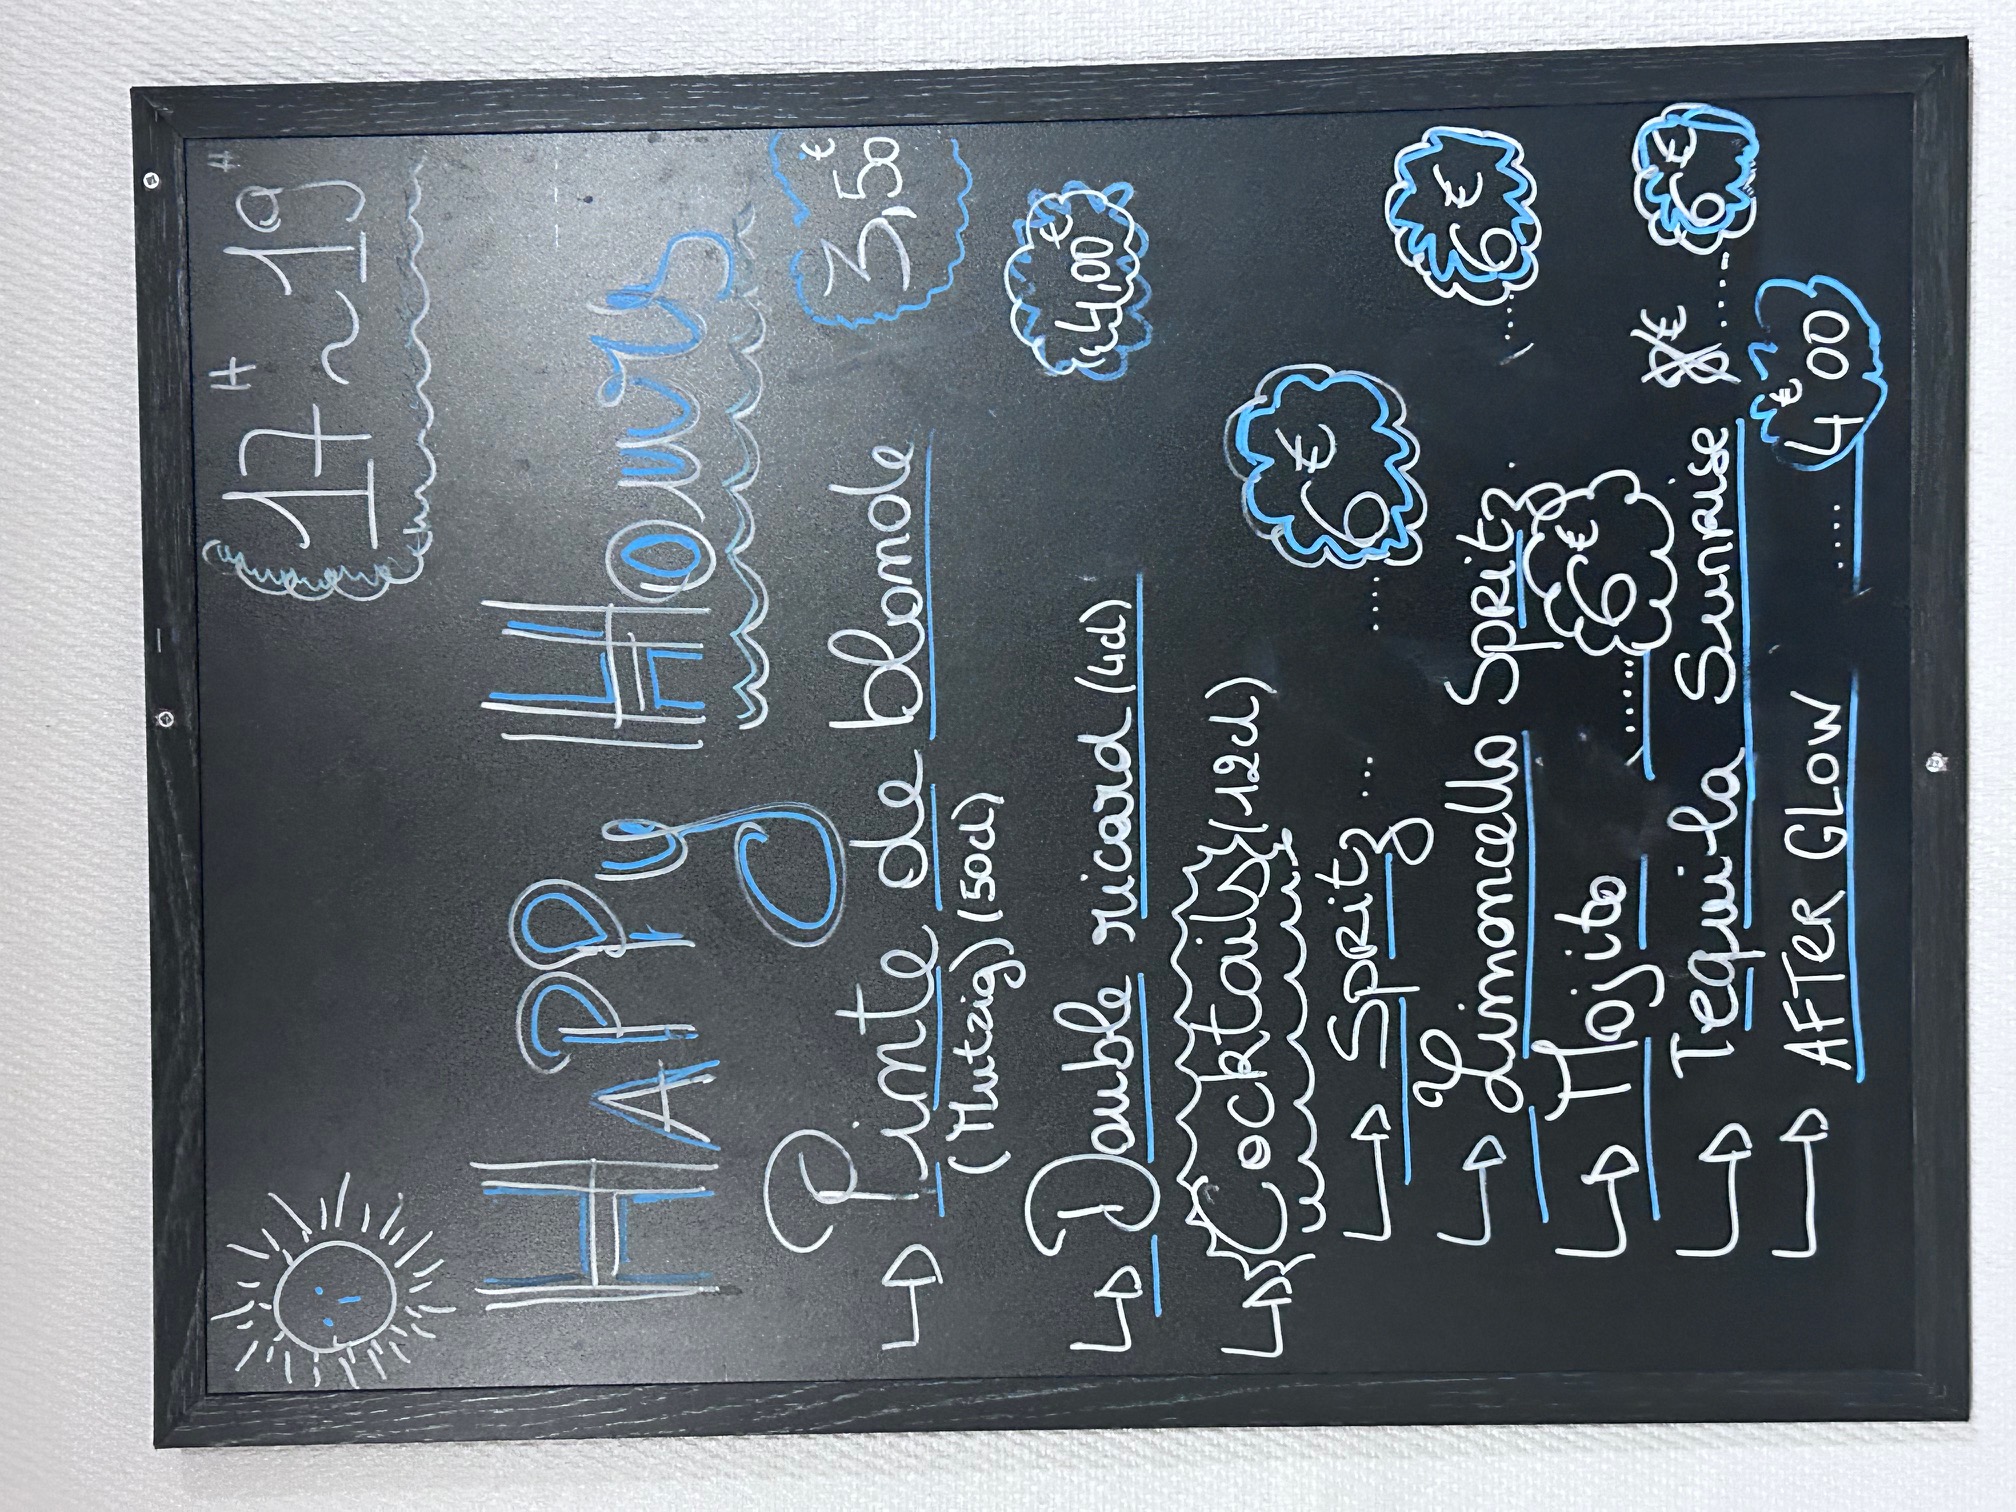 17H ~ 19H
HAPPy Hours
Pinte de blonde 3,50€
(Mutzig) (50cl)
Double ricard (4cl) 4,00€
Cocktails (12cl)
Spritz ... .... 6€
Limoncello Spritz. .... 6€
Mojito ..... 6€
Tequila Sunrise 8€ ..... 6€
AFTER GLOW .... 4€00